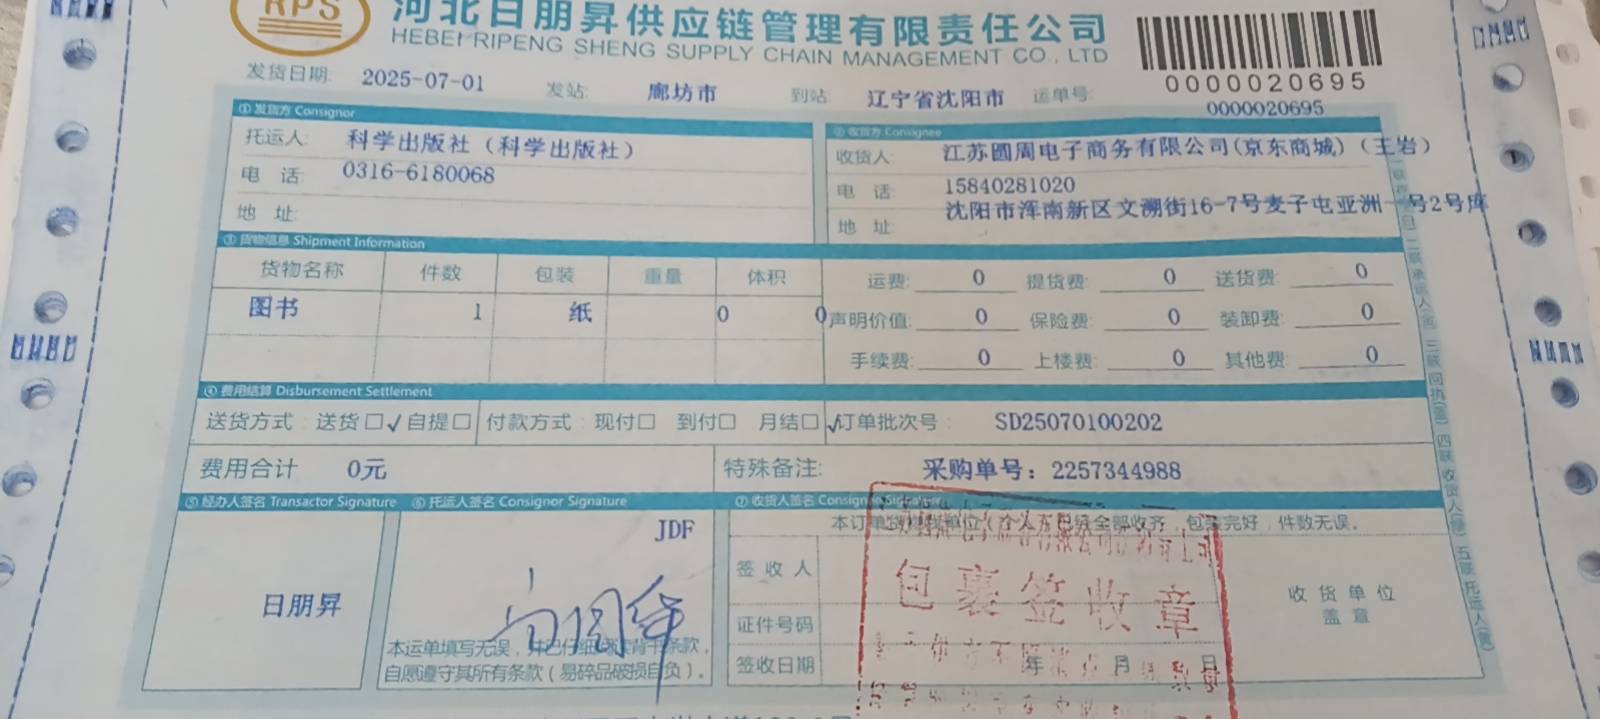 RPS
河北日朋昇供应链管理有限责任公司
HEBEI RIPENG SHENG SUPPLY CHAIN MANAGEMENT CO., LTD
0000020695
发货日期: 2025-07-01 发站: 廊坊市 到站: 辽宁省沈阳市 运单号: 0000020695
① 发货方 Consignor
② 收货方 Consignee
托运人: 科学出版社（科学出版社）
收货人: 江苏圆周电子商务有限公司(京东商城)（王岩）
电 话: 0316-6180068
电 话: 15840281020
地 址:
地 址: 沈阳市浑南新区文溯街16-7号麦子屯亚洲一号2号库
③ 货物信息 Shipment Information
货物名称 件数 包装 重量 体积
图书 1 纸 0 0
运费: 0 提货费: 0 送货费: 0
声明价值: 0 保险费: 0 装卸费: 0
手续费: 0 上楼费: 0 其他费: 0
④ 费用结算 Disbursement Settlement
送货方式: 送货□✓自提□ 付款方式: 现付□ 到付□ 月结□✓订单批次号: SD25070100202
费用合计 0元 特殊备注: 采购单号：2257344988
⑤ 经办人签名 Transactor Signature ⑥ 托运人签名 Consignor Signature ⑦ 收货人签名 Consignee Signature
日朋昇
JDF
本运单填写无误，并已仔细阅读背书条款，
自愿遵守其所有条款（易碎品破损自负）。
全部收齐，包装完好，件数无误。
签 收 人
证件号码
签收日期 年 月 日
收 货 单 位
盖 章
包裹签收章